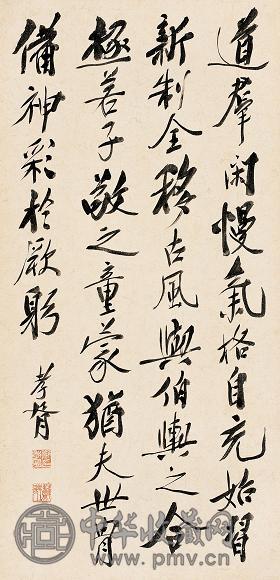 道羣閑慢氣格自充始習
新制全移古風與伯輿之合
極若子敬之童蒙猶夫世胄
備神彩於厥躬
孝胥
中华收藏网
www.pmv.cn